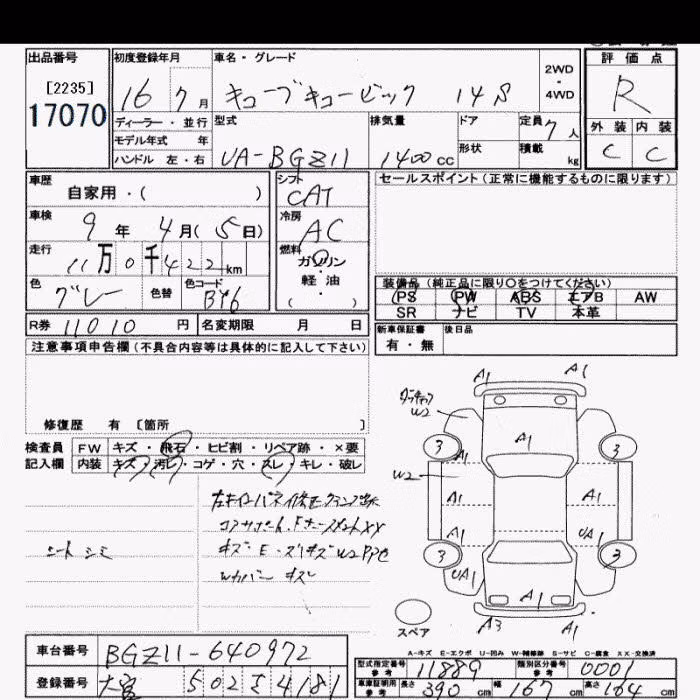 出品番号 初度登録年月 車名・グレード 2WD・4WD 評価点
[2235]
17070 16 7月 キューブキュービック 14S R
ディーラー・並行 型式 排気量 ドア 定員 7人 外装 内装
モデル年式 年 形状 積載 kg C C
ハンドル 左・右 UA-BGZ11 1400cc
車歴 自家用・( ) シフト CAT セールスポイント(正常に機能するものに限ります)
車検 9年 4月( 5日) 冷房 AC
走行 11万0千422km 燃料 ガソリン・軽油・( )
色 グレー 色替 色コード B46 装備品 (純正品に限り○をつけてください)
PS PW ABS エアB AW
SR ナビ TV 本革
R券 11010円 名変期限 月 日 新車保証書 後日品
有・無
注意事項申告欄(不具合内容等は具体的に記入して下さい)
修復歴 有 [箇所 ]
検査員 FW キズ・飛石・ヒビ割・リペア跡・×要
記入欄 内装 キズ・汚レ・コゲ・穴・スレ・キレ・破レ
シートシミ
コアサポート
キズ・E・スリキズW2
Wカバー キズ
A1 A1
W2
A1
3 3
A1
W2
A1 A1
A1 UA1
3 3
UA1
A1 A1
A3 A1
スペア
A-キズ E-エクボ U-凹み W-補修跡 S-サビ C-腐食 XX-交換済
車台番号 BGZ11-640972 型式指定番号 参考 11889 類別区分番号 参考 0001
登録番号 502 さ 4181 車庫証明用 参考 長さ 390cm 幅 167cm 高さ 164cm